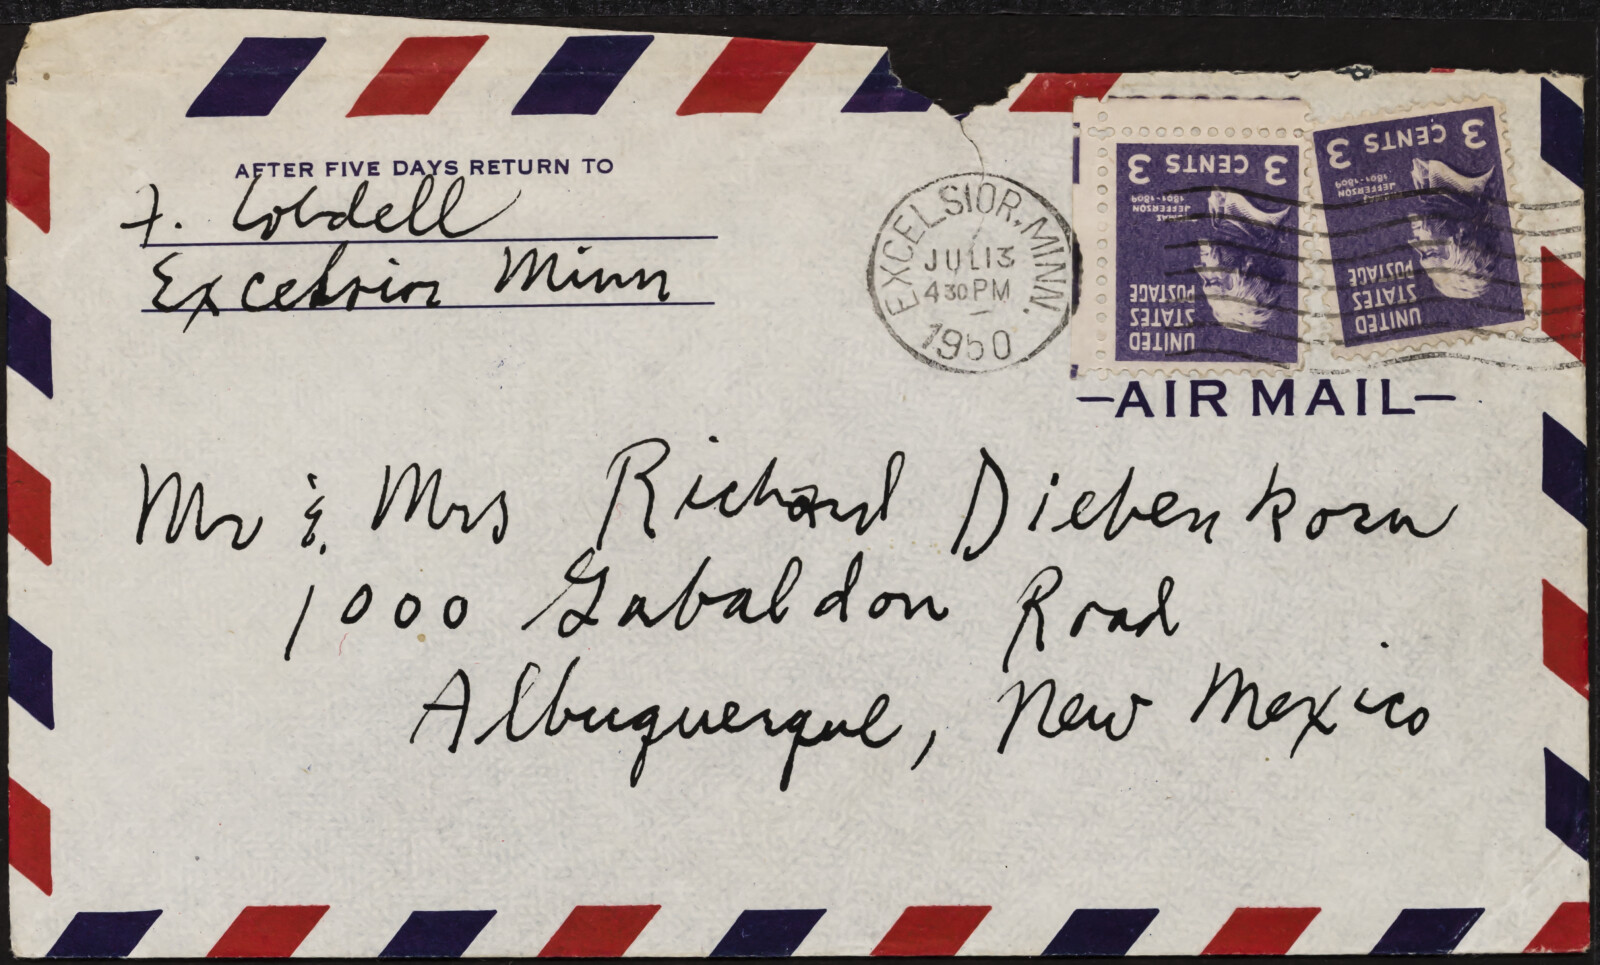 AFTER FIVE DAYS RETURN TO
F. Lobdell
Excelsior Minn
EXCELSIOR, MINN.
JUL 13
4 30 PM
1950
3 CENTS 3
THOMAS
JEFFERSON
1801-1809
UNITED
STATES
POSTAGE
3 CENTS 3
THOMAS
JEFFERSON
1801-1809
UNITED
STATES
POSTAGE
—AIR MAIL—
Mr & Mrs Richard Diebenkorn
1000 Gabaldon Road
Albuquerque, New Mexico